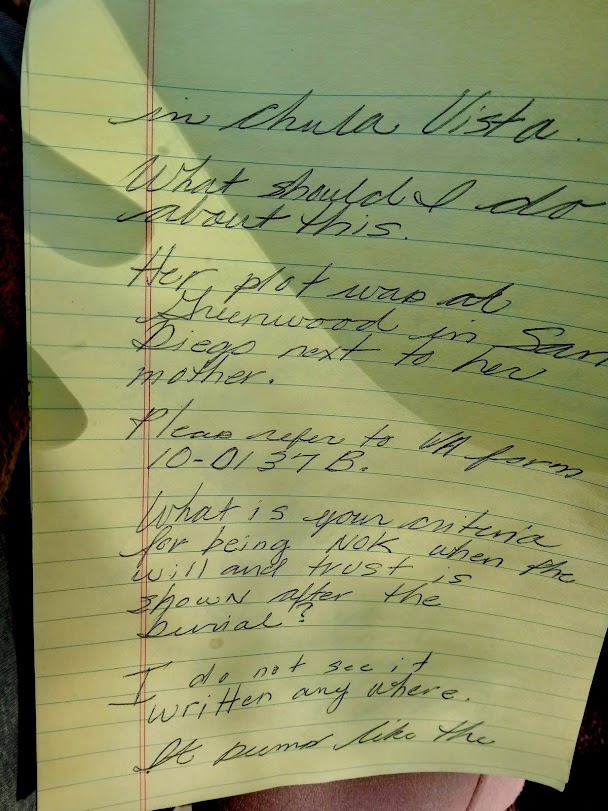 in Chula Vista.
What should I do
about this.
Her plot was at
Greenwood in San
Diego next to her
mother.
Pleas refer to VA form
10-0137B.
What is your criteria
for being NOK when the
will and trust is
shown after the
burial?
I do not see it
written any where.
It seems like the